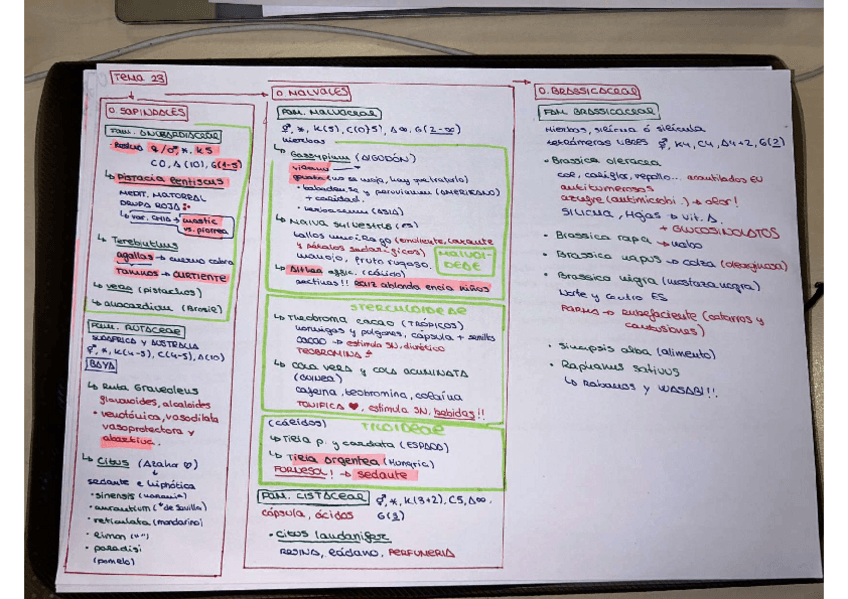 TEMA 23
O. SAPINDALES
FAM. ANACARDIACEAE
Resinas ♀/♂, *, K5
C0, A(10), G(1-5)
↳ Pistacia lentiscus
MEDIT. MATORRAL
DRUPA ROJA
↳ var. CHIA → mastic
vs. piorrea
↳ Terebinthus
agallas → cuerno cabra
TANINOS → CURTIENTE
↳ vera (pistachos)
↳ anacardium (Brasil)
FAM. RUTACEAE
SUDÁFRICA y AUSTRALIA
⚥, *, K(4-5), C(4-5), A(10)
BAYA
↳ Ruta Graveolens
flavonoides, alcaloides
• venotónica, vasodilata
vasoprotectora y
abortiva.
↳ Citrus (Azahar ♡)
↓
sedante e hipnótica
• sinensis (naranja)
• aurantium (" de Sevilla)
• reticulata (mandarina)
• limon ("")
• paradisi
(pomelo)
O. MALVALES
FAM. MALVACEAE
⚥, *, K(5), C(0)5, A∞, G(2-∞)
hierbas
↳ Gossypium (ALGODÓN)
(no se moja, hay que tratarlo)
• barbadense y peruvianum (AMERICANO)
+ calidad.
• herbaceum (ASIA)
↳ Malva sylvestris (ES)
tallos mucílago (emoliente, laxante
y pétalos
manojo, fruto rugoso.
MALVOI-
DEAE
↳ Althea offic. (cálido)
antiinf!! raíz ablanda encía niños
STERCULOIDEAE
↳ Theobroma cacao (TRÓPICOS)
hormigas y pulgones, cápsula + semillas
CACAO → estimula SN, diurético
TEOBROMINA
↳ COLA VERA y COLA ACUMINATA
(GUINEA)
cafeína, teobromina, colatina
TONIFICA ♥, estimula SN, bebidas!!
(cálidos) TILOIDEAE
↳ Tilia p. y cordata (ESPAÑA)
↳ Tilia argentea (Hungría)
FARNESOL! → sedante
FAM. CISTACEAE ⚥, *, K(3+2), C5, A∞
cápsula, ácidos G(3)
• Citus laudanifer
RESINA, ládano, PERFUMERÍA
O. BRASSICACEAE
FAM. BRASSICACEAE
Hierbas, silicua ó silícula
tetrámeras LIBRES ⚥, K4, C4, A4+2, G(2)
• Brassica oleracea
col, coliflor, repollo... EU
antitumorosos
azufre (antimicrobi.) → olor!
SILICUA, Hojas → vit. A
+ GLUCOSINOLATOS
• Brassica rapa → nabo
• Brassica napus → colza (oleaginosa)
• Brassica nigra (mostaza negra)
Norte y centro ES
FARMA → Rubefaciente (catarros y
contusiones)
• Sinapsis alba (alimento)
• Raphanus sativus
↳ Rábanos y WASABI!!